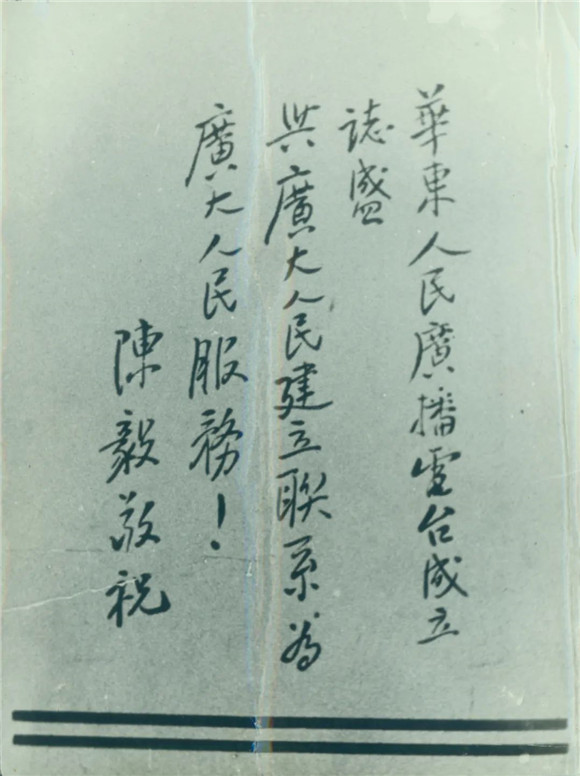 華東人民廣播電台成立
誌盛
與廣大人民建立联系為
廣大人民服務！
陳毅敬祝